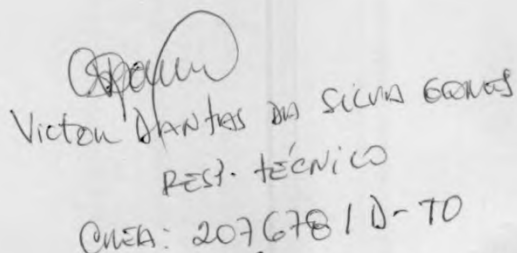 Victor Dantas da Silva Gomes
RESP. TÉCNICO
CREA: 207678/D-TO